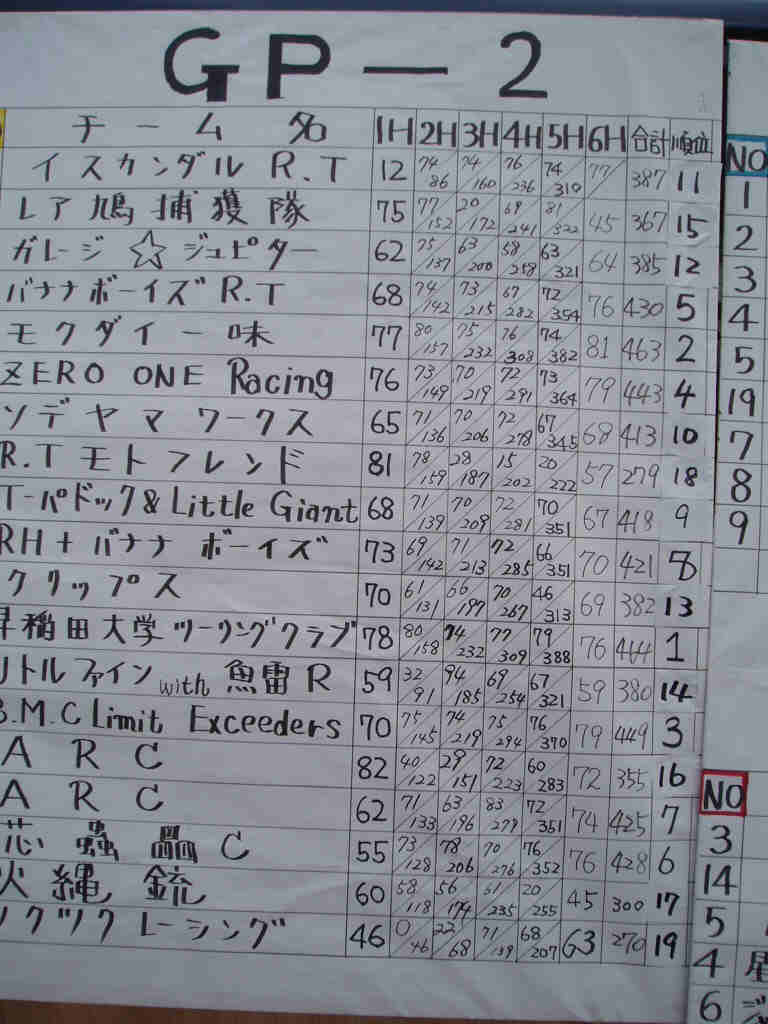 GP-2
チーム名 1H 2H 3H 4H 5H 6H 合計 順位
イスカンダル R.T 12 74/86 74/160 76/236 74/310 77/ 387 11
レア鳩捕獲隊 75 77/152 20/172 69/241 81/322 45 367 15
ガレージ☆ジュピター 62 75/137 63/200 58/258 63/321 64 385 12
バナナボーイズ R.T 68 74/142 73/215 67/282 72/354 76 430 5
モクダイ一味 77 80/157 75/232 76/308 74/382 81 463 2
ZERO ONE Racing 76 73/149 70/219 72/291 73/364 79 443 4
ソデヤマワークス 65 71/136 70/206 72/278 67/345 68 413 10
R.T モトフレンド 81 78/159 28/187 15/202 20/222 57 279 18
T-パドック & Little Giant 68 71/139 70/209 72/281 70/351 67 418 9
RH+バナナボーイズ 73 69/142 71/213 72/285 66/351 70 421 8
クリップス 70 61/131 66/197 70/267 46/313 69 382 13
早稲田大学ツーリングクラブ 78 80/158 74/232 77/309 79/388 76 464 1
リトルファイン with 魚雷R 59 32/91 94/185 69/254 67/321 59 380 14
B.M.C Limit Exceeders 70 75/145 74/219 75/294 76/370 79 449 3
ARC 82 40/122 29/151 72/223 60/283 72 355 16
ARC 62 71/133 63/196 83/279 72/351 74 425 7
蟲 C 55 73/128 78/206 70/276 76/352 76 428 6
火縄銃 60 58/118 56/174 61/235 20/255 45 300 17
ツクツクレーシング 46 0/46 22/68 71/139 68/207 63 270 19
NO
1
2
3
4
5
19
7
8
9
NO
3
14
5
4
6